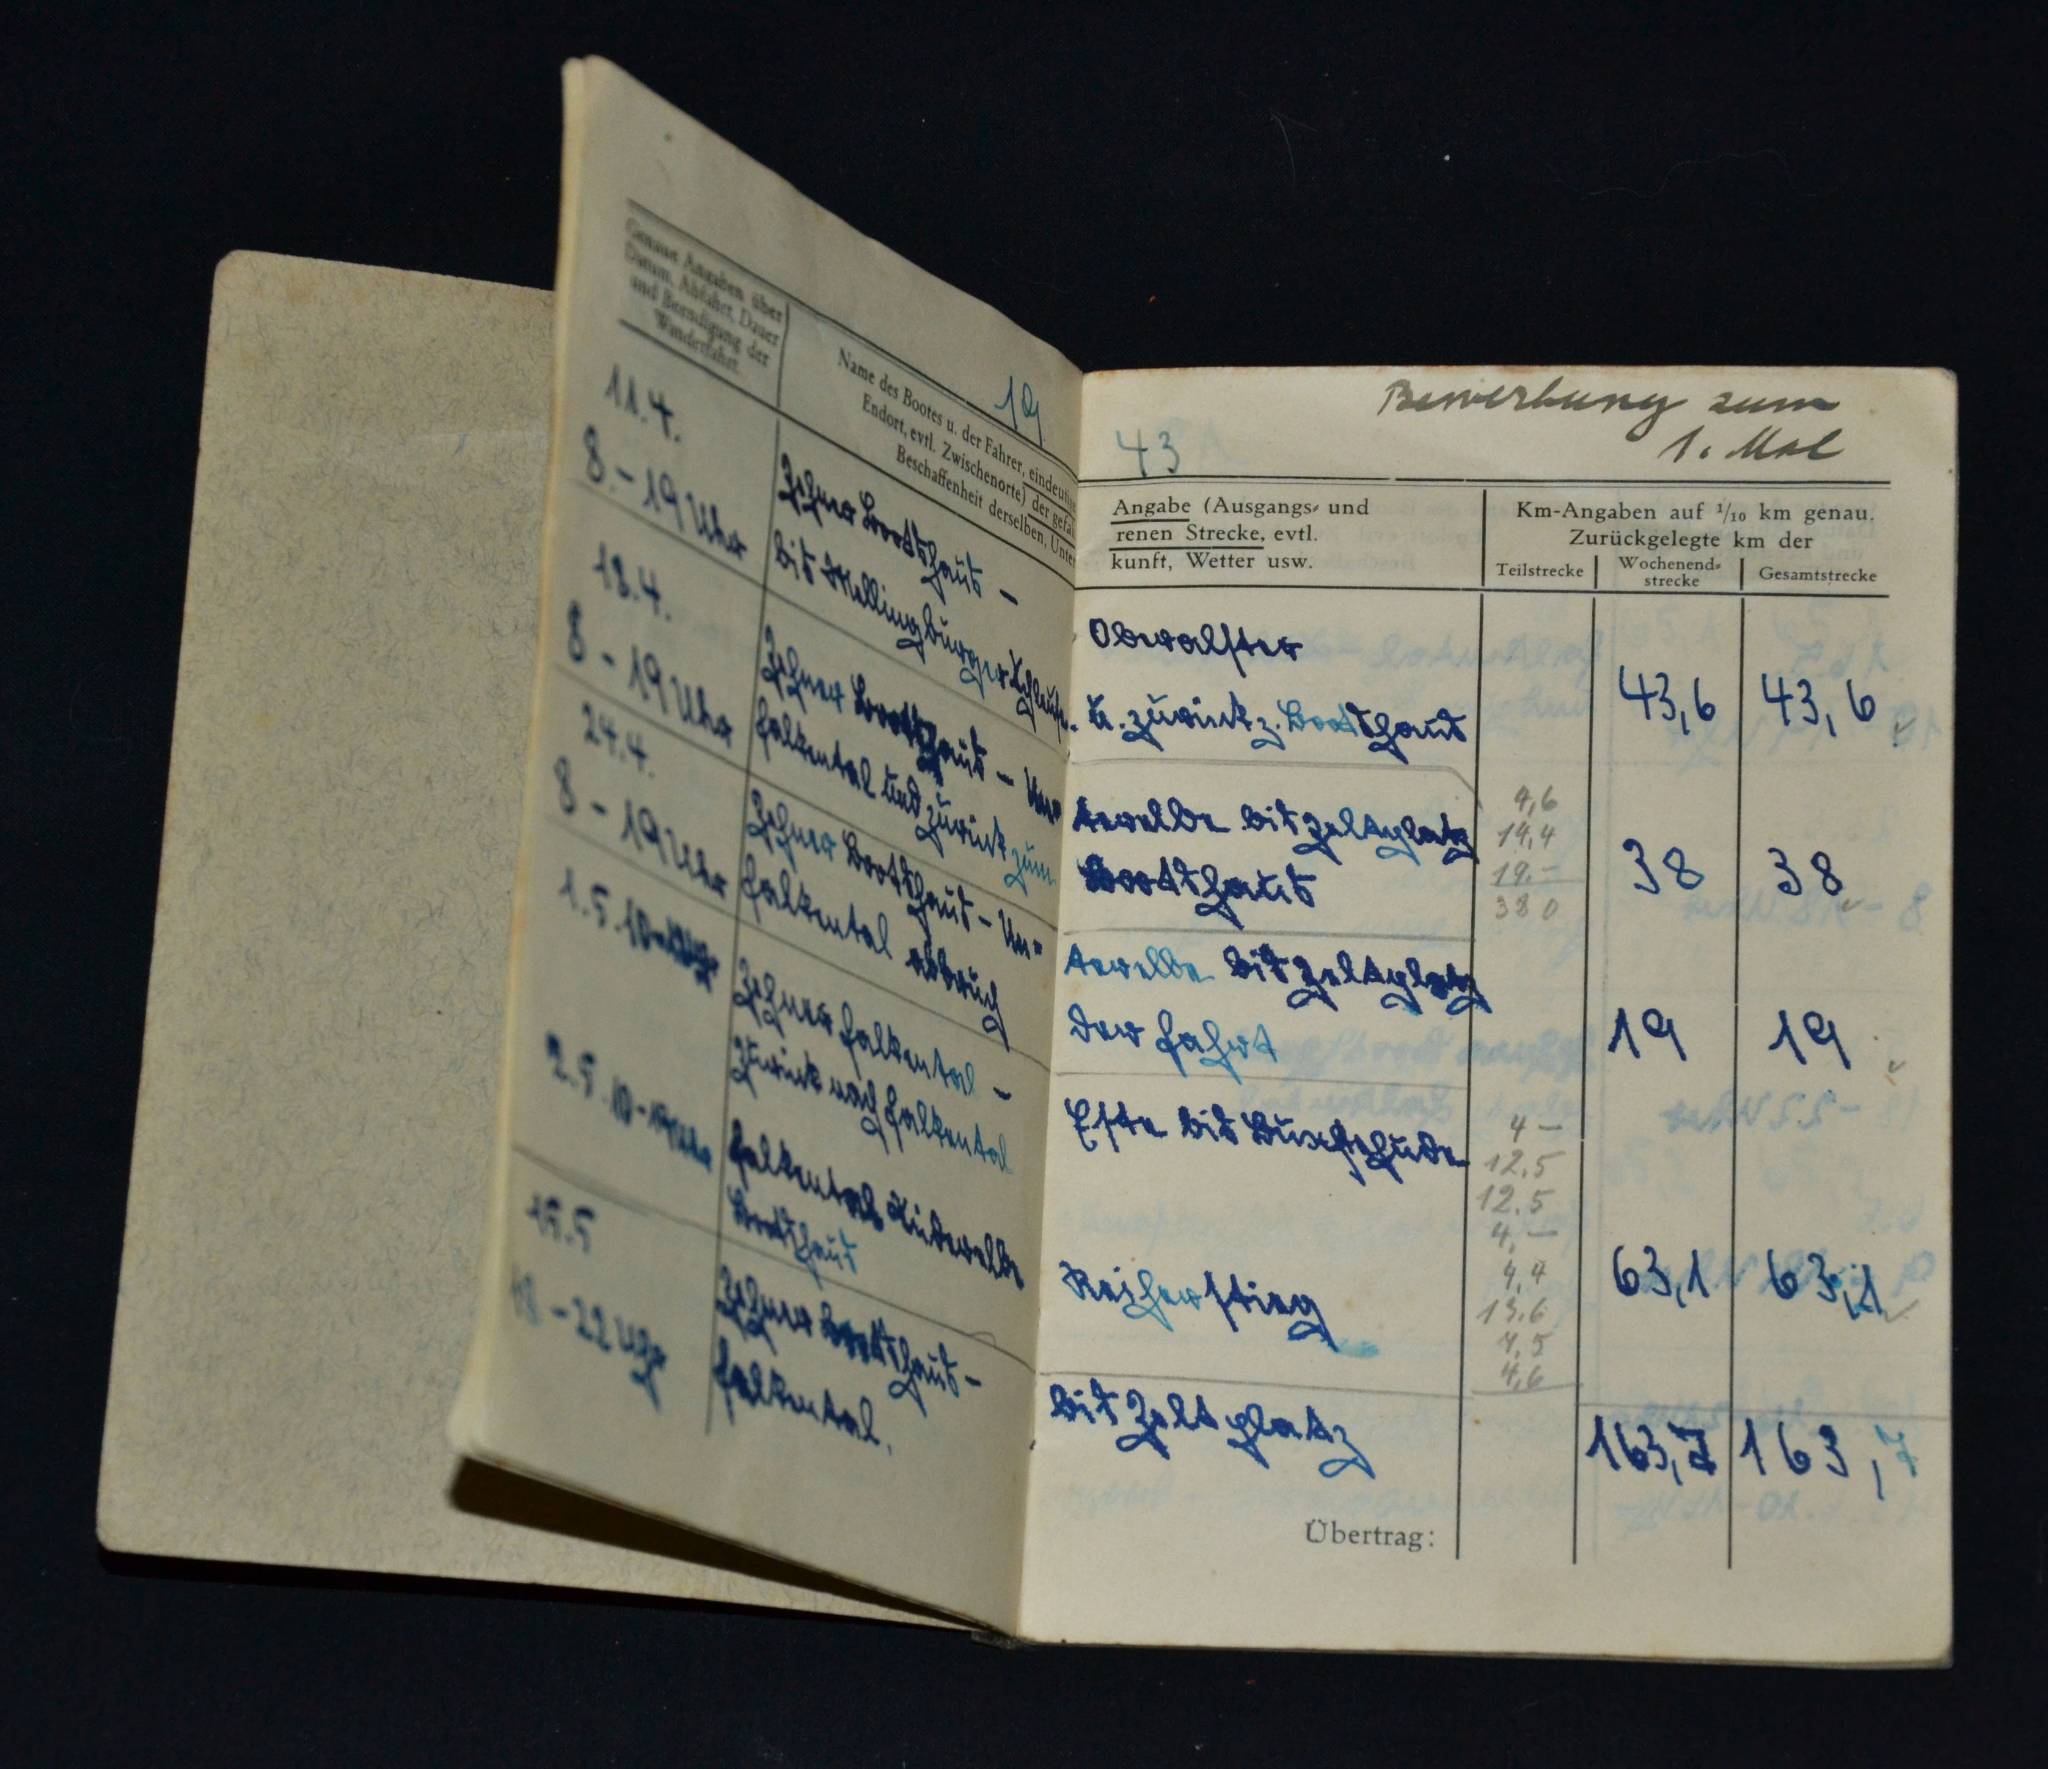 19
Genaue Angaben über
Datum, Abfahrt, Dauer
und Beendigung der
Wanderfahrt.
Name des Bootes u. der Fahrer, eindeutige
Endort, evtl. Zwischenorte) der gefah
Beschaffenheit derselben, Unter
11.4.
8.-19 Uhr
Zehner Bootshaus -
bis Mellingburger Schleuse
18.4.
8 - 19 Uhr
Zehner Bootshaus - Un=
falkental und zurück zum
24.4.
8 - 19 Uhr
Zehner Bootshaus - Un=
falkental abbruch
1.5. 10-
Zehner falkental -
zurück nach falkental
2.5. 10-19 Uhr
falkental Süderelbe
Bootshaus
15.5
18 - 22 Uhr
Zehner Bootshaus -
falkental.
Bewerbung zum
1. Mal
43
Angabe (Ausgangs- und
renen Strecke, evtl.
kunft, Wetter usw.
Km-Angaben auf 1/10 km genau.
Zurückgelegte km der
Teilstrecke
Wochenend-
strecke
Gesamtstrecke
Oberalster
u. zurück z. Bootshaus
43,6 43,6
terelbe bis Zeltplatz
Bootshaus
4,6
14,4
19.-
38 0
38 38
terelbe bis Zeltplatz
der fahrt
19 19
Este bis Buxtehude
4 -
12.5
12.5
4.-
4,4
13.6
7,5
4,6
Reiherstieg
63,1 63,1
bis Zeltplatz
163,7 163,7
Übertrag: